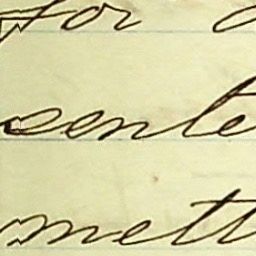 for
sente
mett